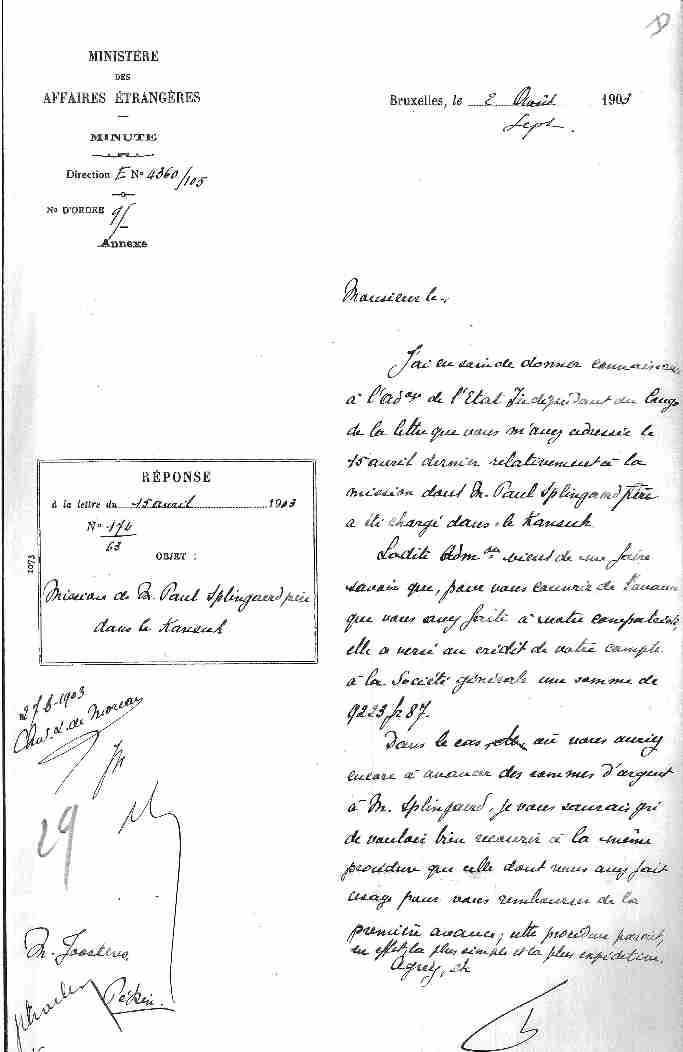 MINISTÈRE
DES
AFFAIRES ÉTRANGÈRES
MINUTE
Direction E No 4360/105
No D'ORDRE 95
Annexe
Bruxelles, le 2 Août 1903
Sept.
Monsieur le
J'ai eu soin de donner connaissance
à l'Adon de l'Etat Indépendant du Congo
de la lettre que vous m'avez adressée le
15 avril dernier relativement à la
mission dont M. Paul Splingaerd père
a été chargé dans le Kansuh.
Ladite Admon vient de me faire
savoir que, pour vous couvrir de l'avance
que vous avez faite à notre compatriote,
elle a versé au crédit de votre compte
à la Société générale une somme de
9223 fr 87.
Dans le cas où vous auriez
encore à avancer des sommes d'argent
à M. Splingaerd, je vous saurais gré
de vouloir bien recourir à la même
procédure que celle dont vous avez fait
usage pour vous rembourser de la
première avance; cette procédure paraît,
en effet, la plus simple et la plus expéditive.
Agréez, etc
RÉPONSE
à la lettre du 15 avril 1903
No 174
63
OBJET :
Mission de M. Paul Splingaerd père
dans le Kansuh
1073
27-6-1903
Chev. de Moreau
29
M. Joostens,
Pékin.